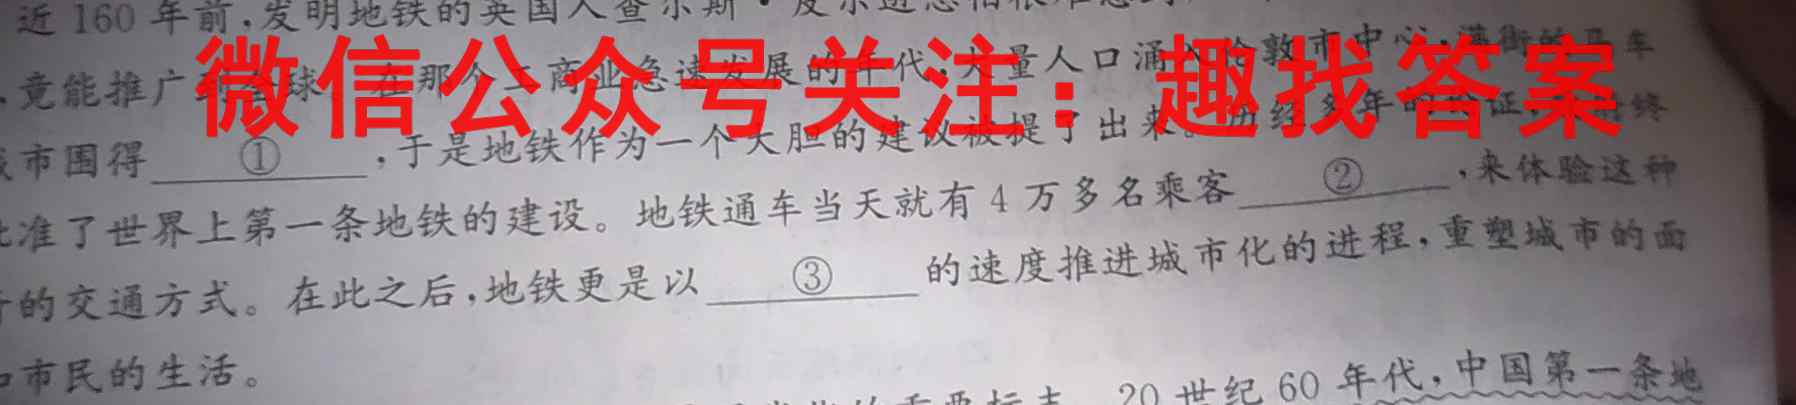 近 160 年前,发明地铁的英国人查尔斯·皮尔逊恐怕很难想到
竟能推广到全球。在那个工商业急速发展的年代,大量人口涌入伦敦市中心,满街的马车
市围得 ① ,于是地铁作为一个大胆的建议被提了出来。历经多年的 证, 终
准了世界上第一条地铁的建设。地铁通车当天就有 4 万多名乘客 ② ,来体验这种
的交通方式。在此之后,地铁更是以 ③ 的速度推进城市化的进程,重塑城市的面
市民的生活。
20 世纪 60 年代,中国第一条地
微信公众号关注:趣找答案